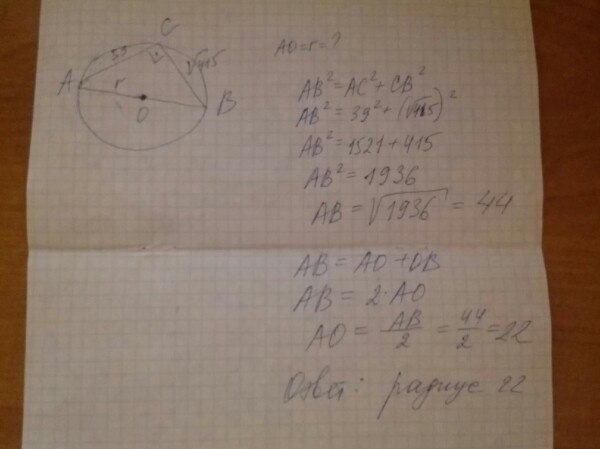 C
39
√415
A
r
O
B
AO=r=?
AB²=AC²+CB²
AB²=39²+(√415)²
AB²=1521+415
AB²=1936
AB=√1936=44
AB=AO+OB
AB=2·AO
AO=AB/2=44/2=22
Ответ: радиус 22